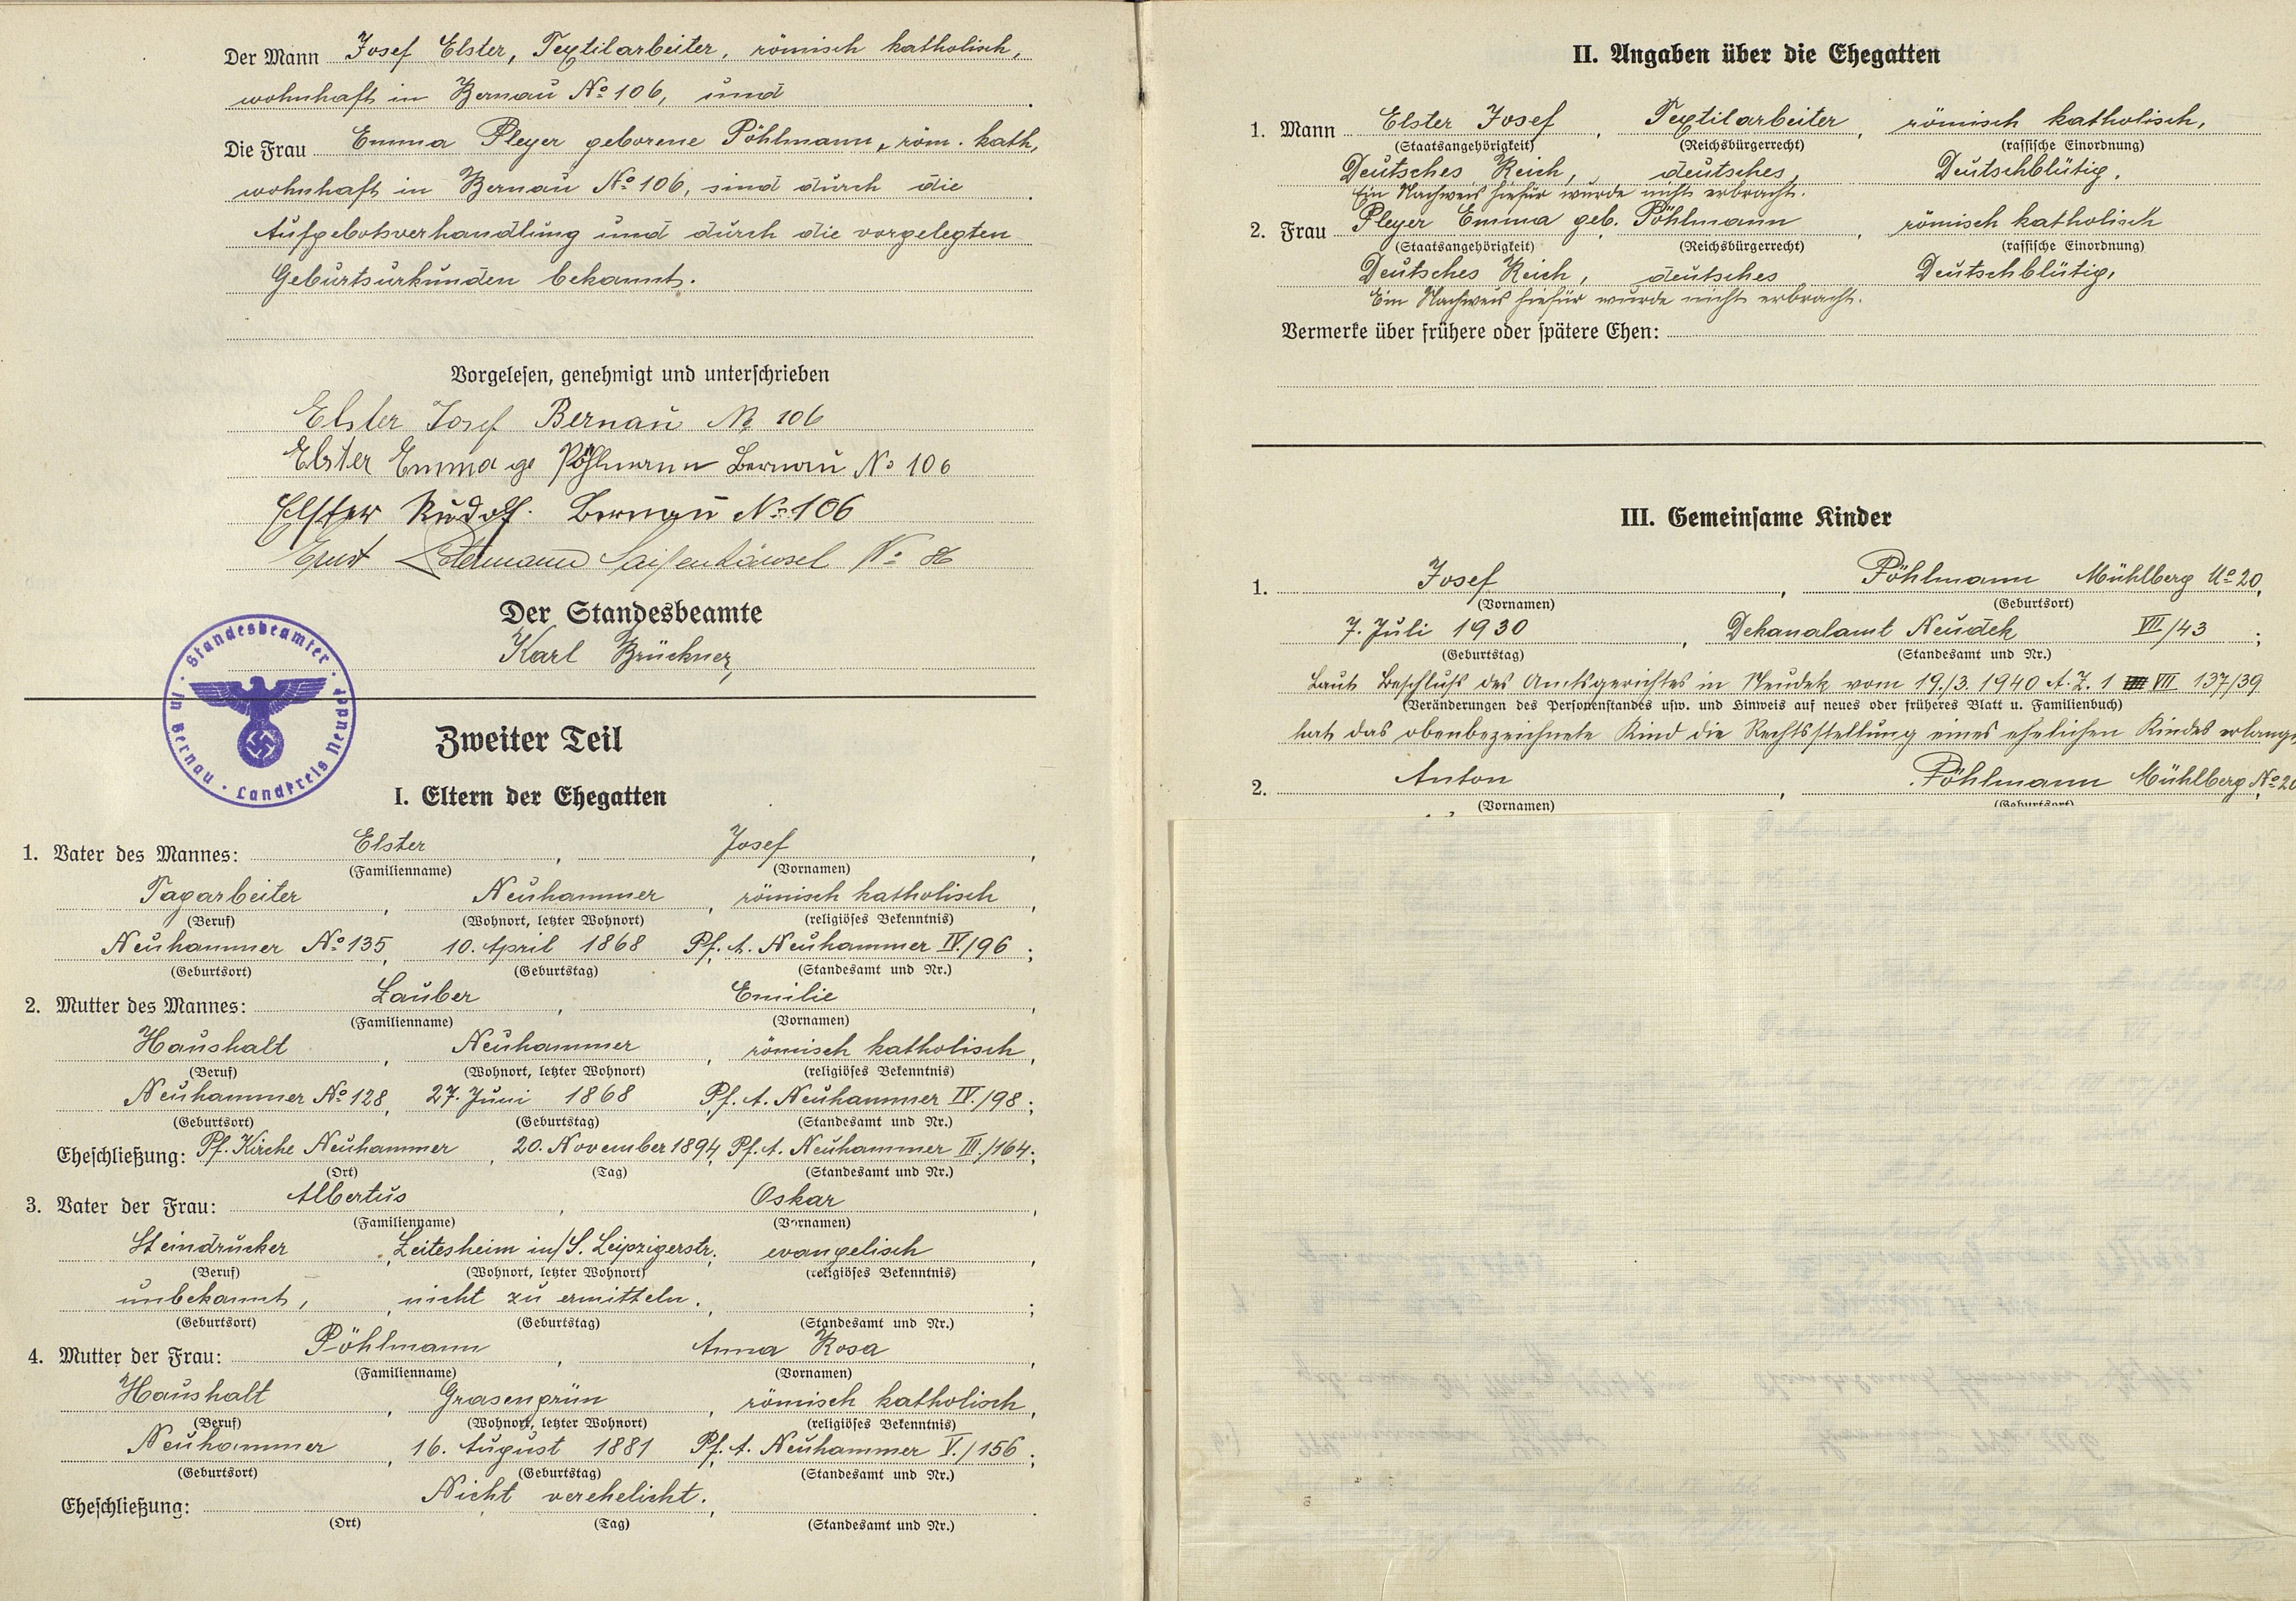 Der Mann Josef Elster, Textilarbeiter, römisch katholisch,
wohnhaft in Bernau No 106, und
Die Frau Emma Pleyer geborene Pöhlmann, röm. kath,
wohnhaft in Bernau No 106, sind durch die
Aufgebotsverhandlung und durch die vorgelegten
Geburtsurkunden bekannt.
Vorgelesen, genehmigt und unterschrieben
Elster Josef Bernau No 106
Elster Emma ge Pöhlmann Bernau No 106
Elster Rudolf. Bernau No 106
Ernst No 86
Der Standesbeamte
Karl Brückner
Standesbeamter in Bernau · Landkreis Neudek
Zweiter Teil
I. Eltern der Ehegatten
1. Vater des Mannes: Elster, Josef,
(Familienname) (Vornamen)
Tagarbeiter, Neuhammer, römisch katholisch,
(Beruf) (Wohnort, letzter Wohnort) (religiöses Bekenntnis)
Neuhammer No 135, 10. April 1868 Pf. A. Neuhammer IV./96;
(Geburtsort) (Geburtstag) (Standesamt und Nr.)
2. Mutter des Mannes: Lauber, Emilie,
(Familienname) (Vornamen)
Haushalt, Neuhammer, römisch katholisch,
(Beruf) (Wohnort, letzter Wohnort) (religiöses Bekenntnis)
Neuhammer No 128, 27. Juni 1868 Pf. A. Neuhammer IV./98;
(Geburtsort) (Geburtstag) (Standesamt und Nr.)
Eheschließung: Pf. Kirche Neuhammer, 20. November 1894, Pf. A. Neuhammer III./164;
(Ort) (Tag) (Standesamt und Nr.)
3. Vater der Frau: Albertus, Oskar,
(Familienname) (Vornamen)
Steindrucker, Zeitesheim in/S. Leipzigerstr., evangelisch,
(Beruf) (Wohnort, letzter Wohnort) (religiöses Bekenntnis)
unbekannt, nicht zu ermitteln.;
(Geburtsort) (Geburtstag) (Standesamt und Nr.)
4. Mutter der Frau: Pöhlmann, Anna Rosa,
(Familienname) (Vornamen)
Haushalt, Grasengrün, römisch katholisch,
(Beruf) (Wohnort, letzter Wohnort) (religiöses Bekenntnis)
Neuhammer, 16. August 1881 Pf. A. Neuhammer V./156;
(Geburtsort) (Geburtstag) (Standesamt und Nr.)
Eheschließung: Nicht verehelicht.
(Ort) (Tag) (Standesamt und Nr.)
II. Angaben über die Ehegatten
1. Mann Elster Josef, Textilarbeiter, römisch katholisch,
(Staatsangehörigkeit) (Reichsbürgerrecht) (rassische Einordnung)
Deutsches Reich, deutsches, Deutschblütig.
Ein Nachweis hiefür wurde nicht erbracht.
2. Frau Pleyer Emma geb. Pöhlmann, römisch katholisch
(Staatsangehörigkeit) (Reichsbürgerrecht) (rassische Einordnung)
Deutsches Reich, deutsches Deutschblütig,
Ein Nachweis hiefür wurde nicht erbracht.
Vermerke über frühere oder spätere Ehen:
III. Gemeinsame Kinder
1. Josef, Pöhlmann Mühlberg No 20,
(Vornamen) (Geburtsort)
7. Juli 1930, Dekanalamt Neudek VII/43;
(Geburtstag) (Standesamt und Nr.)
Laut Beschluß des Amtsgerichtes in Neudek vom 19./3. 1940 A. Z. 1 VII 137/39
(Veränderungen des Personenstandes usw. und Hinweis auf neues oder früheres Blatt u. Familienbuch)
hat das obenbezeichnete Kind die Rechtsstellung eines ehelichen Kindes erlangt
2. Anton, Pöhlmann Mühlberg No 20
(Vornamen) (Geburtsort)